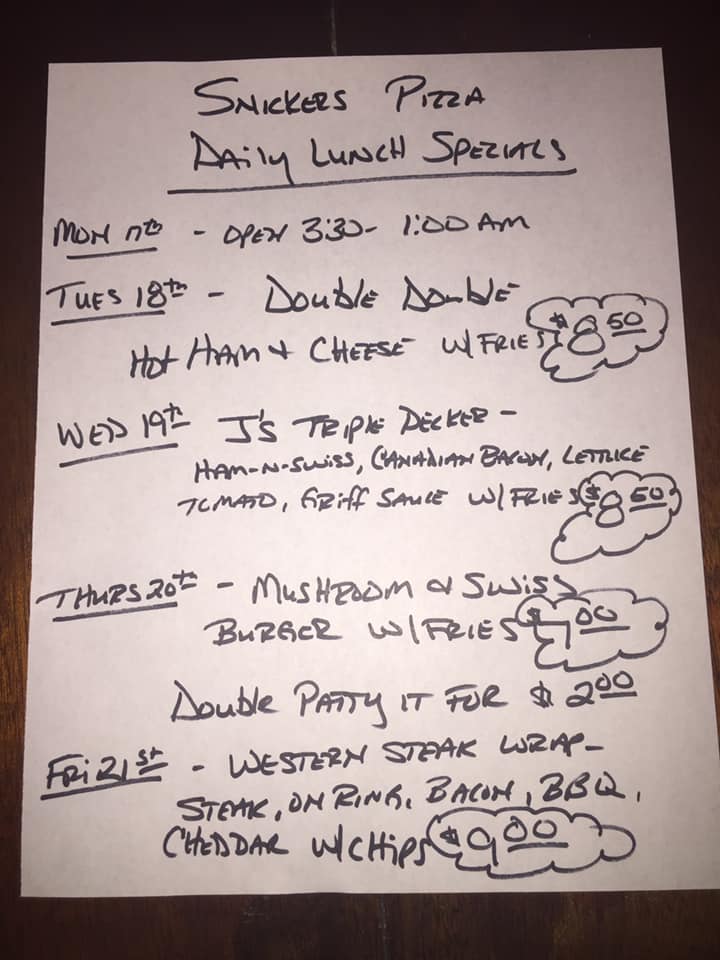 SNICKERS PIZZA
DAily LUNCH SPECIALS
MON 17th - OPEN 3:30- 1:00 AM
TUES 18th - DOUBLE DOUBLE
HOT HAM & CHEESE W/FRIES $8.50
WED 19th J'S TRIPLE DECKER -
HAM-N-SWISS, CANADIAN BACON, LETTUCE
TOMATO, GRIFF SAUCE W/FRIES $8.50
THURS 20th - MUSHROOM & SWISS
BURGER W/FRIES $7.00
DOUBLE PATTY IT FOR $2.00
FRi 21st - WESTERN STEAK WRAP-
STEAK, ON RING, BACON, BBQ,
CHEDDAR W/CHIPS $9.00